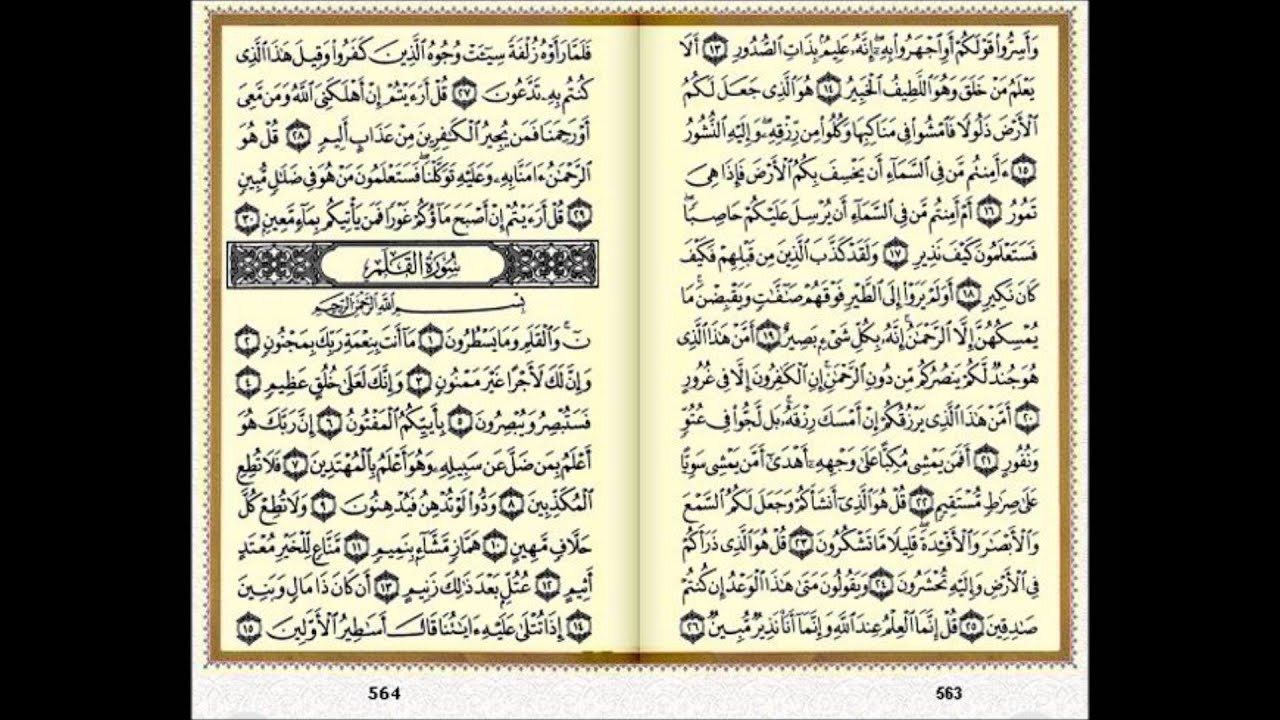 وَأَسِرُّوا۟ قَوْلَكُمْ أَوِ ٱجْهَرُوا۟ بِهِۦٓ إِنَّهُۥ عَلِيمٌۢ بِذَاتِ ٱلصُّدُورِ ١٣ أَلَا
يَعْلَمُ مَنْ خَلَقَ وَهُوَ ٱللَّطِيفُ ٱلْخَبِيرُ ١٤ هُوَ ٱلَّذِى جَعَلَ لَكُمُ
ٱلْأَرْضَ ذَلُولًا فَٱمْشُوا۟ فِى مَنَاكِبِهَا وَكُلُوا۟ مِن رِّزْقِهِۦ وَإِلَيْهِ ٱلنُّشُورُ
١٥ ءَأَمِنتُم مَّن فِى ٱلسَّمَآءِ أَن يَخْسِفَ بِكُمُ ٱلْأَرْضَ فَإِذَا هِىَ
تَمُورُ ١٦ أَمْ أَمِنتُم مَّن فِى ٱلسَّمَآءِ أَن يُرْسِلَ عَلَيْكُمْ حَاصِبًا
فَسَتَعْلَمُونَ كَيْفَ نَذِيرِ ١٧ وَلَقَدْ كَذَّبَ ٱلَّذِينَ مِن قَبْلِهِمْ فَكَيْفَ
كَانَ نَكِيرِ ١٨ أَوَلَمْ يَرَوْا۟ إِلَى ٱلطَّيْرِ فَوْقَهُمْ صَٰٓفَّٰتٍ وَيَقْبِضْنَ مَا
يُمْسِكُهُنَّ إِلَّا ٱلرَّحْمَٰنُ إِنَّهُۥ بِكُلِّ شَىْءٍۭ بَصِيرٌ ١٩ أَمَّنْ هَٰذَا ٱلَّذِى
هُوَ جُندٌ لَّكُمْ يَنصُرُكُم مِّن دُونِ ٱلرَّحْمَٰنِ إِنِ ٱلْكَٰفِرُونَ إِلَّا فِى غُرُورٍ
٢٠ أَمَّنْ هَٰذَا ٱلَّذِى يَرْزُقُكُمْ إِنْ أَمْسَكَ رِزْقَهُۥ بَل لَّجُّوا۟ فِى عُتُوٍّ
وَنُفُورٍ ٢١ أَفَمَن يَمْشِى مُكِبًّا عَلَىٰ وَجْهِهِۦٓ أَهْدَىٰٓ أَمَّن يَمْشِى سَوِيًّا
عَلَىٰ صِرَٰطٍ مُّسْتَقِيمٍ ٢٢ قُلْ هُوَ ٱلَّذِىٓ أَنشَأَكُمْ وَجَعَلَ لَكُمُ ٱلسَّمْعَ
وَٱلْأَبْصَٰرَ وَٱلْأَفْـِٔدَةَ قَلِيلًا مَّا تَشْكُرُونَ ٢٣ قُلْ هُوَ ٱلَّذِى ذَرَأَكُمْ
فِى ٱلْأَرْضِ وَإِلَيْهِ تُحْشَرُونَ ٢٤ وَيَقُولُونَ مَتَىٰ هَٰذَا ٱلْوَعْدُ إِن كُنتُمْ
صَٰدِقِينَ ٢٥ قُلْ إِنَّمَا ٱلْعِلْمُ عِندَ ٱللَّهِ وَإِنَّمَآ أَنَا۠ نَذِيرٌ مُّبِينٌ ٢٦
563
فَلَمَّا رَأَوْهُ زُلْفَةً سِيٓـَٔتْ وُجُوهُ ٱلَّذِينَ كَفَرُوا۟ وَقِيلَ هَٰذَا ٱلَّذِى
كُنتُم بِهِۦ تَدَّعُونَ ٢٧ قُلْ أَرَءَيْتُمْ إِنْ أَهْلَكَنِىَ ٱللَّهُ وَمَن مَّعِىَ
أَوْ رَحِمَنَا فَمَن يُجِيرُ ٱلْكَٰفِرِينَ مِنْ عَذَابٍ أَلِيمٍ ٢٨ قُلْ هُوَ
ٱلرَّحْمَٰنُ ءَامَنَّا بِهِۦ وَعَلَيْهِ تَوَكَّلْنَا فَسَتَعْلَمُونَ مَنْ هُوَ فِى ضَلَٰلٍ مُّبِينٍ
٢٩ قُلْ أَرَءَيْتُمْ إِنْ أَصْبَحَ مَآؤُكُمْ غَوْرًا فَمَن يَأْتِيكُم بِمَآءٍ مَّعِينٍۭ ٣٠
سُورَةُ القَلَمِ
بِسْمِ ٱللَّهِ ٱلرَّحْمَٰنِ ٱلرَّحِيمِ
نٓ وَٱلْقَلَمِ وَمَا يَسْطُرُونَ ١ مَآ أَنتَ بِنِعْمَةِ رَبِّكَ بِمَجْنُونٍ ٢
وَإِنَّ لَكَ لَأَجْرًا غَيْرَ مَمْنُونٍ ٣ وَإِنَّكَ لَعَلَىٰ خُلُقٍ عَظِيمٍ ٤
فَسَتُبْصِرُ وَيُبْصِرُونَ ٥ بِأَييِّكُمُ ٱلْمَفْتُونُ ٦ إِنَّ رَبَّكَ هُوَ
أَعْلَمُ بِمَن ضَلَّ عَن سَبِيلِهِۦ وَهُوَ أَعْلَمُ بِٱلْمُهْتَدِينَ ٧ فَلَا تُطِعِ
ٱلْمُكَذِّبِينَ ٨ وَدُّوا۟ لَوْ تُدْهِنُ فَيُدْهِنُونَ ٩ وَلَا تُطِعْ كُلَّ
حَلَّافٍ مَّهِينٍ ١٠ هَمَّازٍ مَّشَّآءٍۭ بِنَمِيمٍ ١١ مَّنَّاعٍ لِّلْخَيْرِ مُعْتَدٍ
أَثِيمٍ ١٢ عُتُلٍّۭ بَعْدَ ذَٰلِكَ زَنِيمٍ ١٣ أَن كَانَ ذَا مَالٍ وَبَنِينَ
١٤ إِذَا تُتْلَىٰ عَلَيْهِ ءَايَٰتُنَا قَالَ أَسَٰطِيرُ ٱلْأَوَّلِينَ ١٥
564